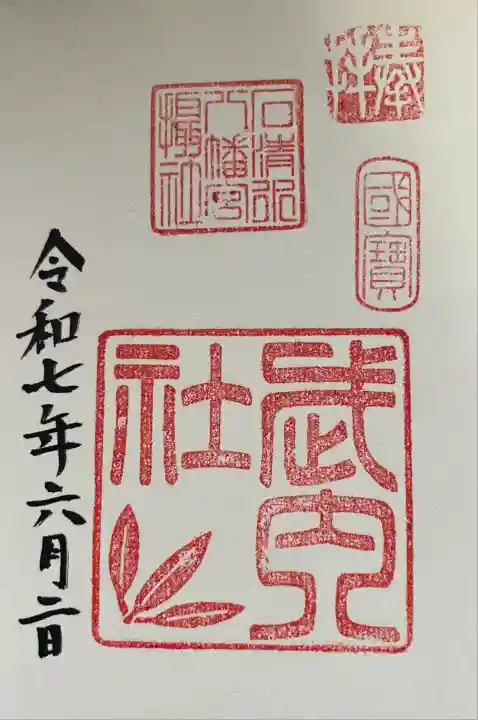 奉拝
國寶
石清水
八幡宮
摂社
武内
社
令和七年六月二日